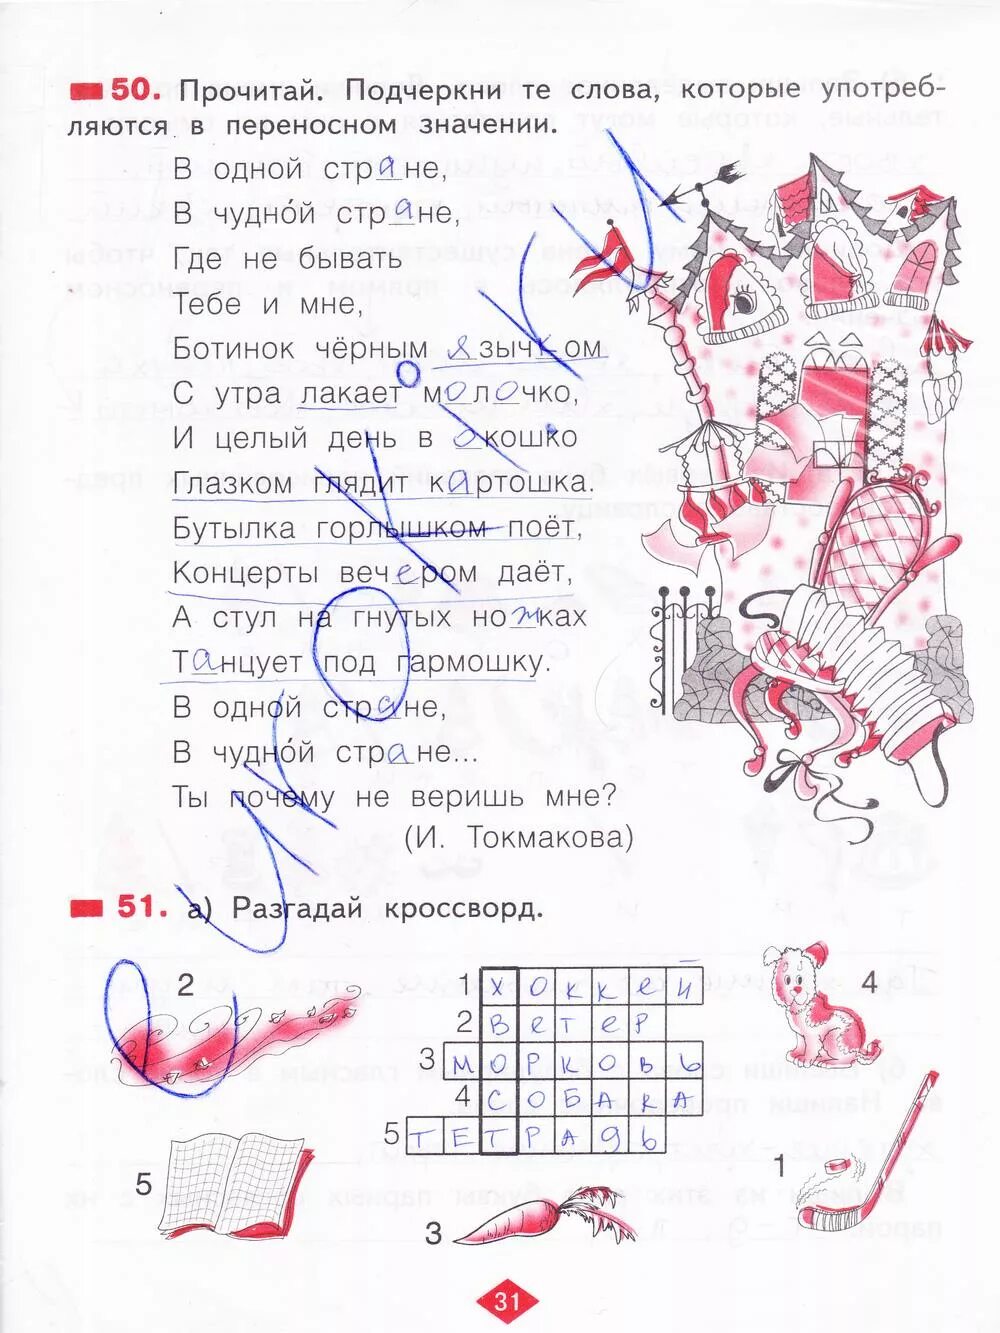 50. Прочитай. Подчеркни те слова, которые употреб-
ляются в переносном значении.
В одной стране,
В чудно́й стране,
Где не бывать
Тебе и мне,
Ботинок чёрным язычком
С утра лакает молочко,
И целый день в окошко
Глазком глядит картошка.
Бутылка горлышком поёт,
Концерты вечером даёт,
А стул на гнутых ножках
Танцует под гармошку.
В одной стране,
В чудно́й стране...
Ты почему не веришь мне?
(И. Токмакова)
51. а) Разгадай кроссворд.
2
1 хоккей
4
2 ветер
3 морковь
4 СОБАКА
5 ТЕТРАДЬ
5
1
3
31